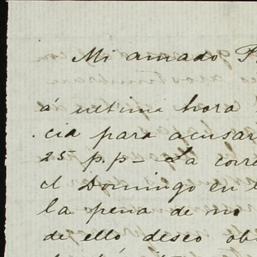 Mi amado
á ultima hora
cia para acusar
25 p.p– La corre
el Domingo en l
la pena de no
de ello deseo ob